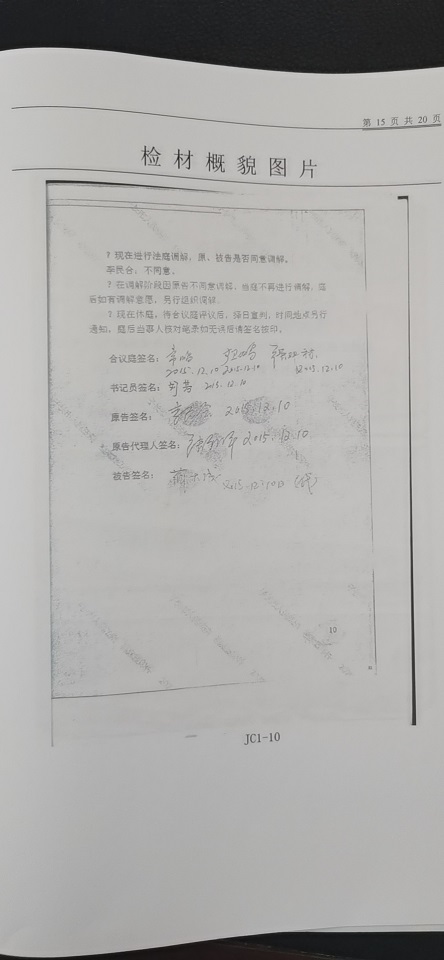 第 15 页 共 20 页
检材概貌图片
? 现在进行法庭调解，原、被告是否同意调解。
李民合：不同意。
? 在调解阶段因原告不同意调解，当庭不再进行调解，庭
后如有调解意愿，另行组织调解。
? 现在休庭，待合议庭评议后，择日宣判，时间地点另行
通知，庭后当事人核对笔录如无误后请签名捺印。
合议庭签名：
2015.12.10 2015.12.10 2015.12.10
书记员签名： 2015.12.10
原告签名： 2015.12.10
原告代理人签名： 2015.12.10
被告签名： 2015.12.10日
10
JC1-10